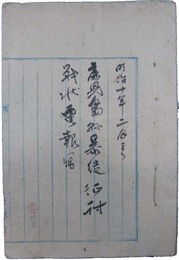 明治十年二月ヨリ
鹿児島縣暴徒征討
戦状電報寫